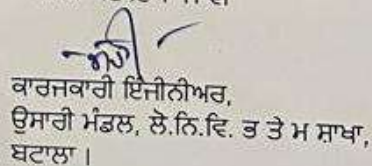 ਕਾਰਜਕਾਰੀ ਇੰਜੀਨੀਅਰ,
ਉਸਾਰੀ ਮੰਡਲ, ਲੋ.ਨਿ.ਵਿ. ਭ ਤੇ ਮ ਸ਼ਾਖਾ,
ਬਟਾਲਾ।